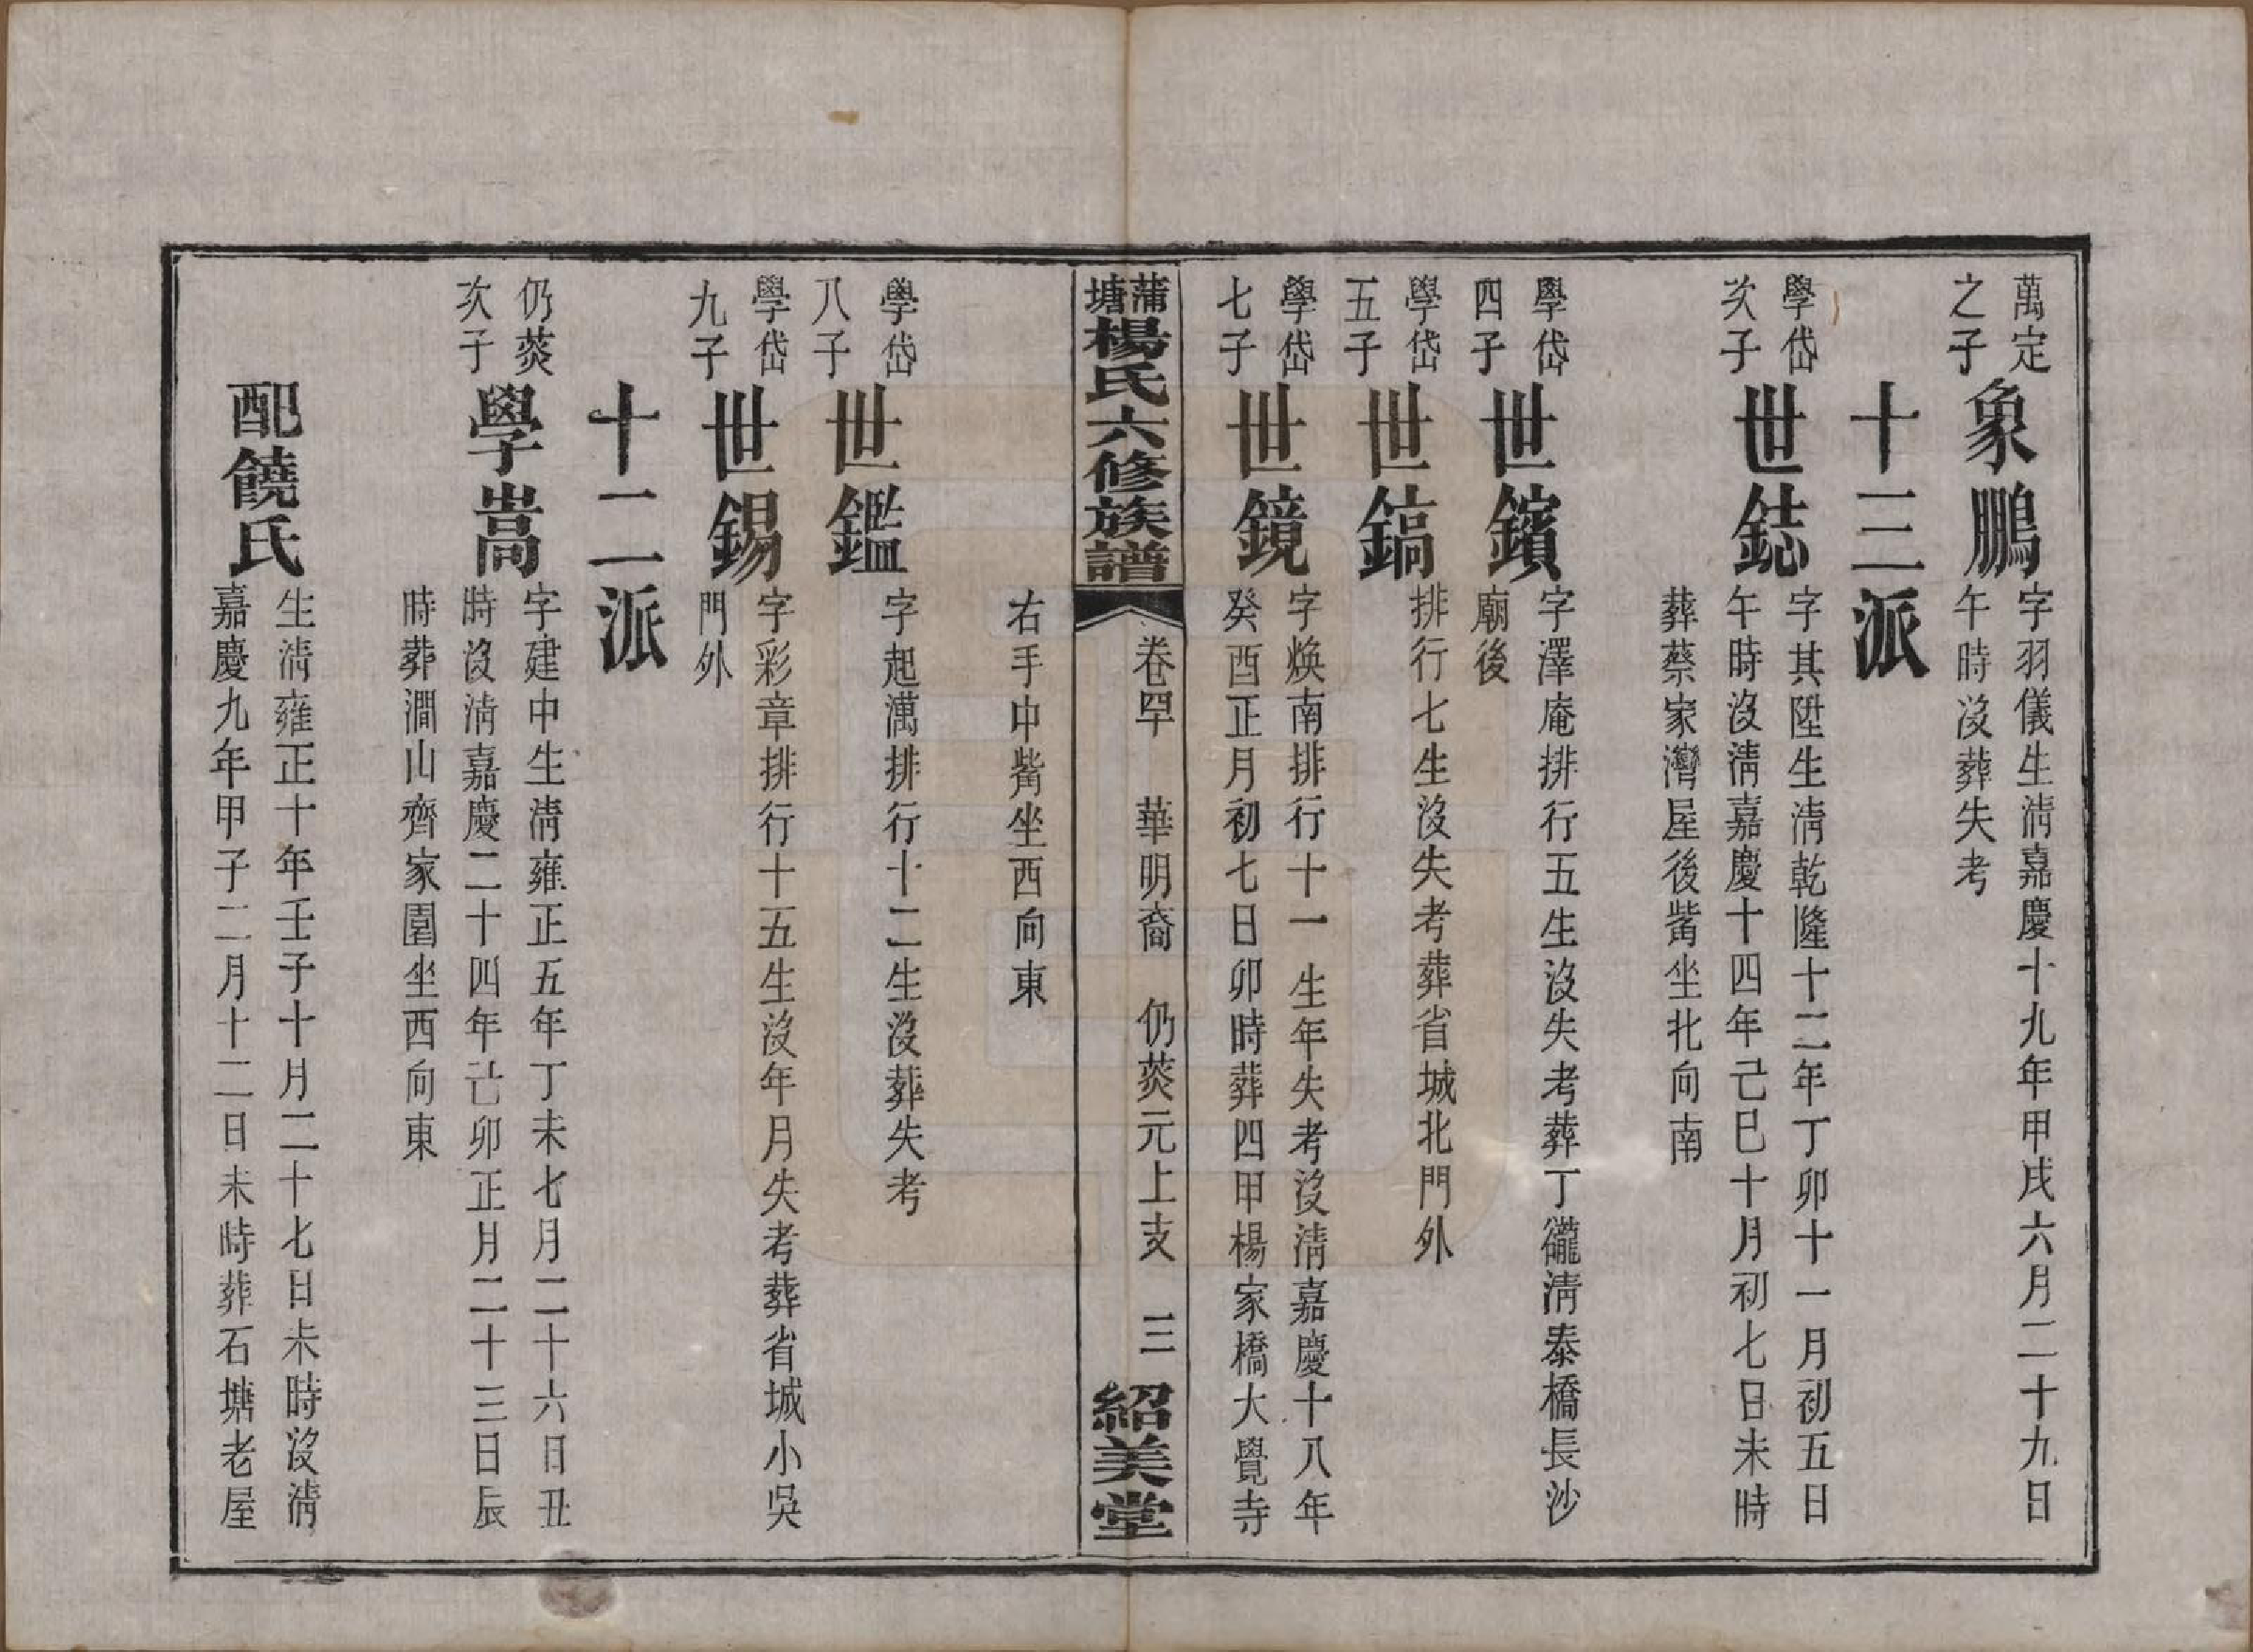 萬定
之子
象鵬
字羽儀生淸嘉慶十九年甲戌六月二十九日
午時沒葬失考
十三派
學岱
次子
世鋕
字其陞生淸乾隆十二年丁卯十一月初五日
午時沒淸嘉慶十四年己巳十月初七日未時
葬蔡家灣屋後嘴坐北向南
學岱
四子
世鑌
字澤庵排行五生沒失考葬丁字灣淸泰橋長沙
廟後
學岱
五子
世鎬
排行七生沒失考葬省城北門外
學岱
七子
世鏡
字煥南排行十一生年失考沒淸嘉慶十八年
癸酉正月初七日卯時葬四甲楊家橋大覺寺
蒲塘楊氏六修族譜
卷四 華明裔 仍荧元上支 三
紹美堂
右手中嘴坐西向東
學岱
八子
世鑑
字起澫排行十二生沒葬失考
學岱
九子
世錫
字彩章排行十五生沒年月失考葬省城小吳
門外
十二派
仍荧
次子
學嵩
字建中生淸雍正五年丁未七月二十六日丑
時沒淸嘉慶二十四年己卯正月二十三日辰
時葬澗山齊家圍坐西向東
配饒氏
生淸雍正十年壬子十月二十七日未時沒淸
嘉慶九年甲子二月十二日未時葬石塘老屋